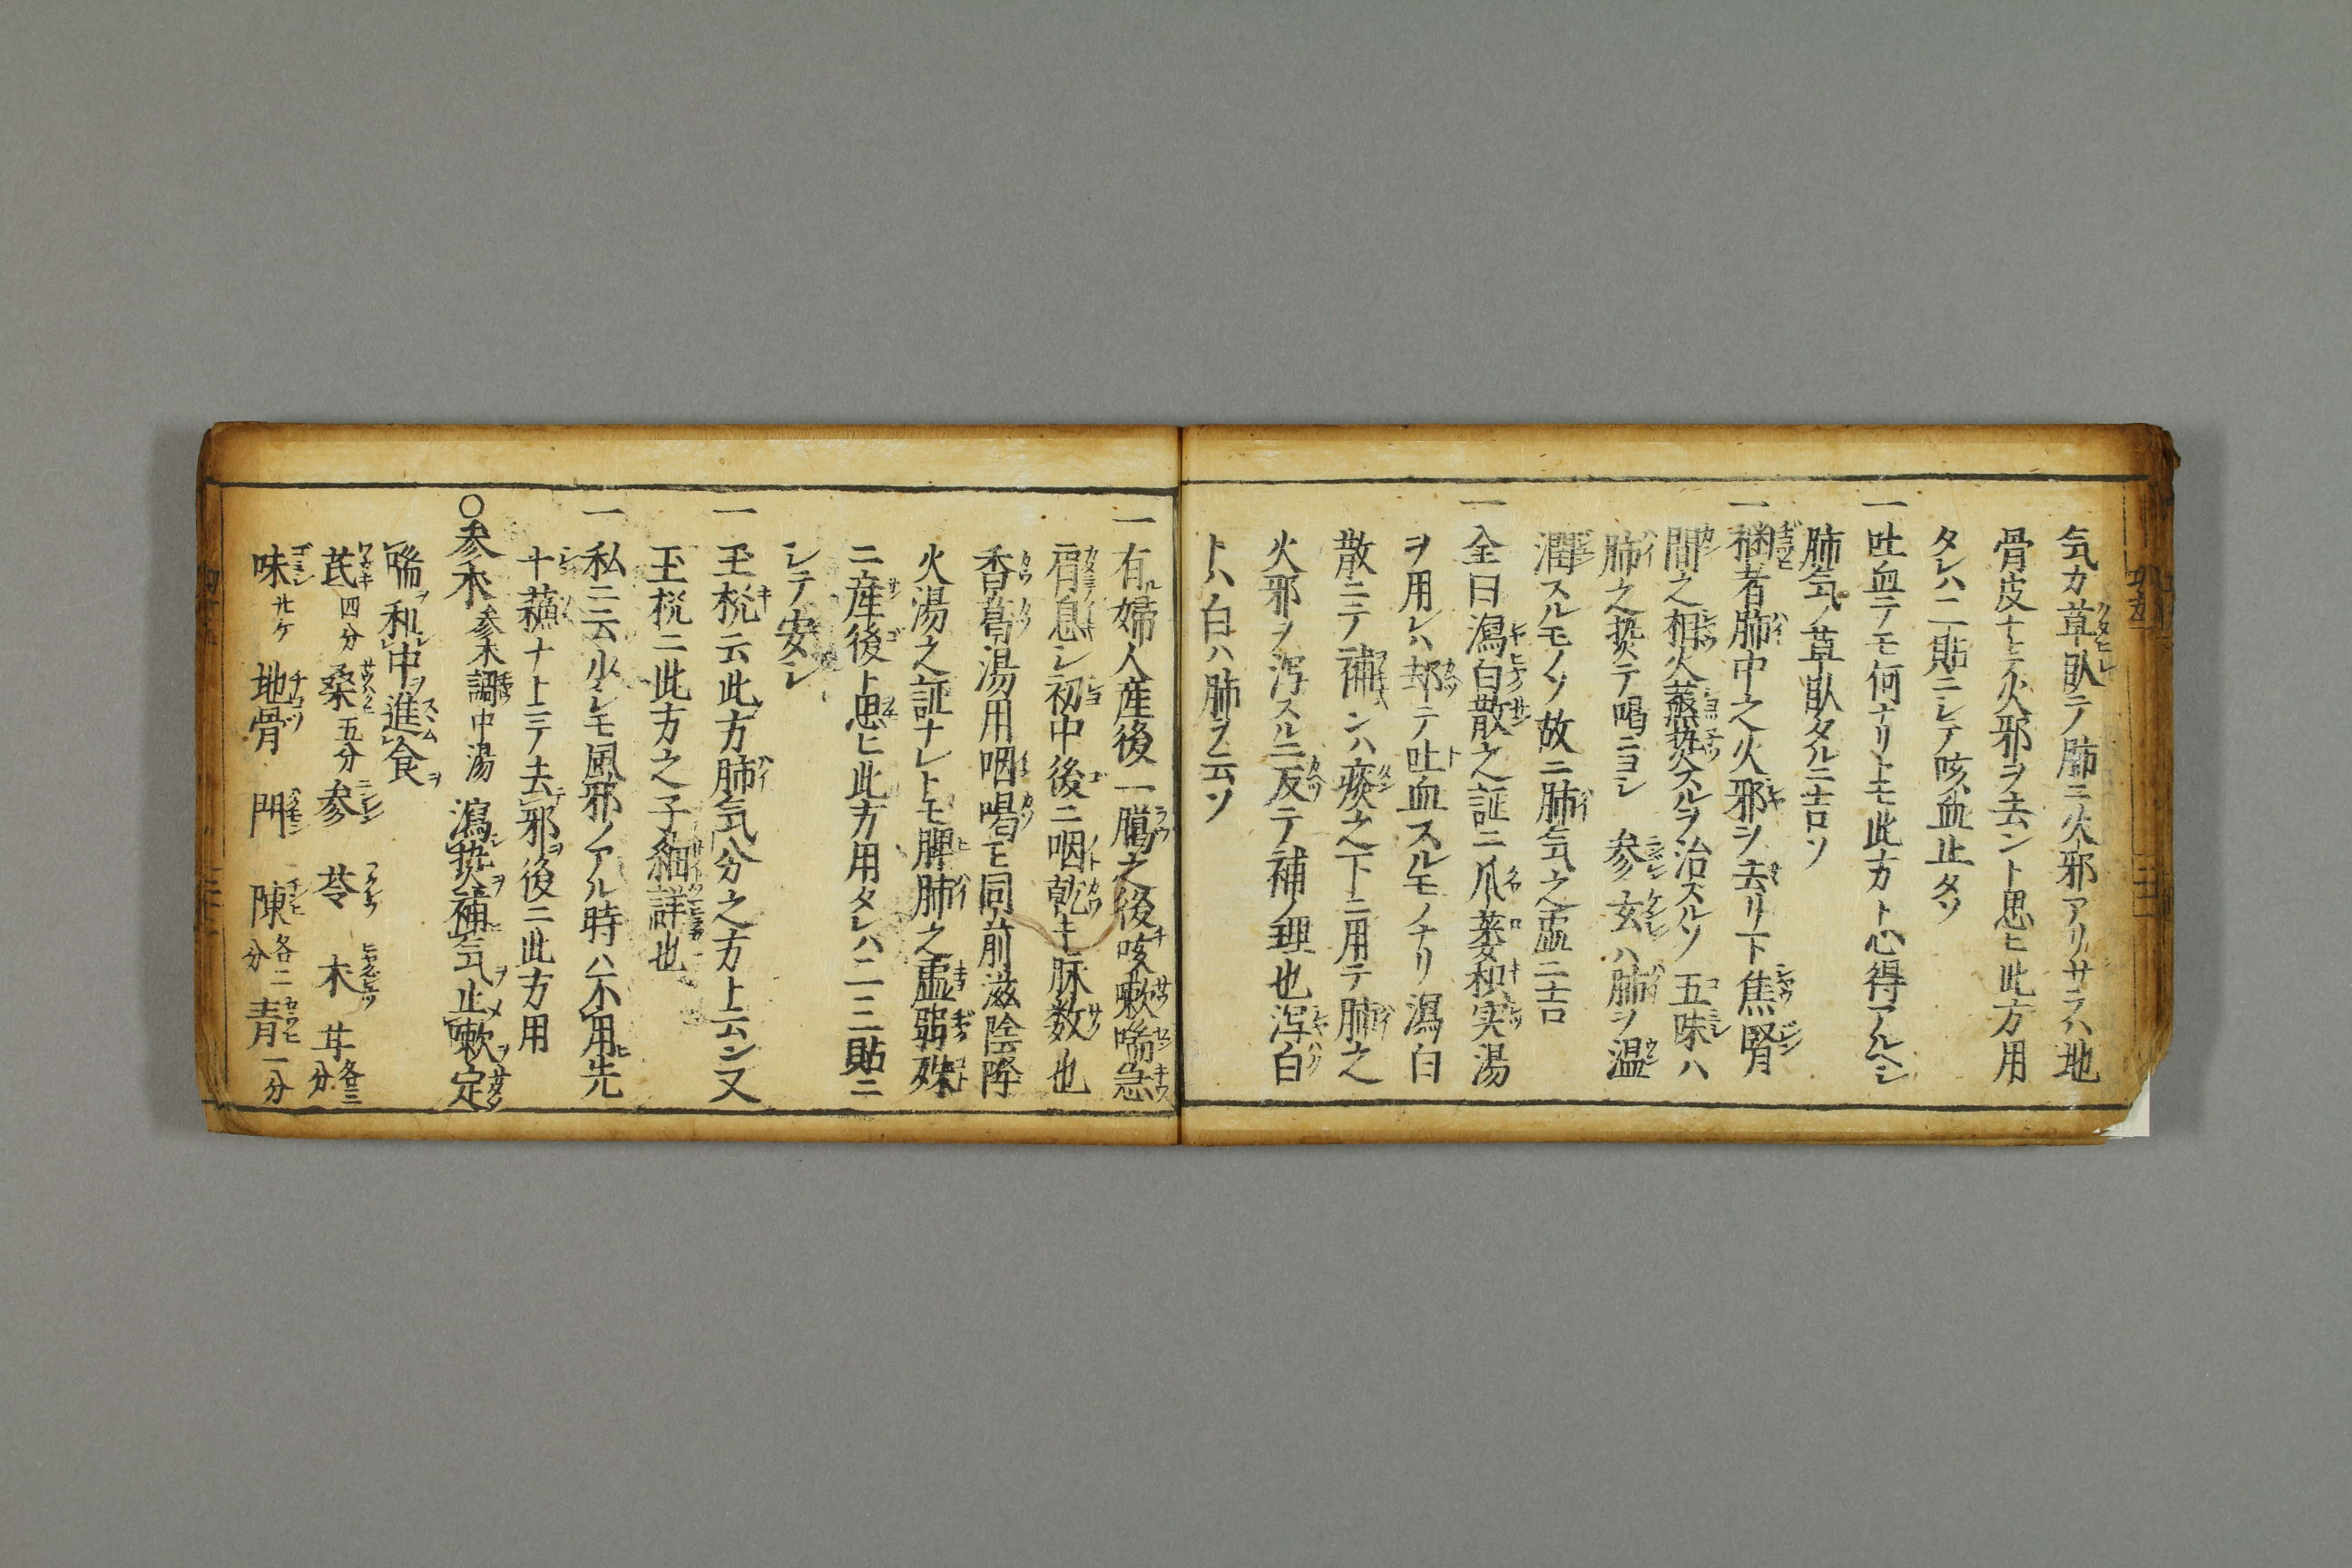 気カ草臥テ肺ニ火邪アリサラハ地
骨皮ナトニテ火邪ヲ去ント思ヒ此方用
タレハ二貼ニシテ咳血止タソ
一吐血テモ何ナリトモ此方ト心得アルヘシ
肺気ノ草臥タルニ吉ソ
一梗者肺中之火邪ヲ去リ下焦腎
間之相火蒸㷔スルヲ治スルソ五味ハ
肺之熱テ喝ニヨシ 参玄ハ肺ヲ温
潤スルモノソ故ニ肺気之虚ニ吉
一全曰瀉白散之証ニ爪蔞和実湯
ヲ用レハ却テ吐血スルモノナリ瀉白
散ニテ補ンハ痰之下ニ用テ肺之
火邪ヲ瀉スルニ反テ補ノ理也瀉白
トハ白ハ肺ヲ云ソ
一有婦人産後一臈之後咳嗽喘急
肩息シ初中後ニ咽乾キ脉数也
香葛湯用咽喝モ同前滋陰降
火湯之証ナレトモ脾肺之虚弱殊
ニ産後ト思ヒ此方用タレハ二三貼ニ
シテ安シ
一玉机云此方肺気分之方ト云ン又
玉机ニ此方之子細詳也
一私ニ云少シモ風邪ノアル時ハ不用先
十蘓ナトニテ去邪後ニ此方用
○参朮 参朮調中湯 瀉熱補気止嗽定
喘和中進食
芪四分 桑五分 参 苓 朮 甘各三分
味廿ケ 地骨 門 陳各二分 青一分